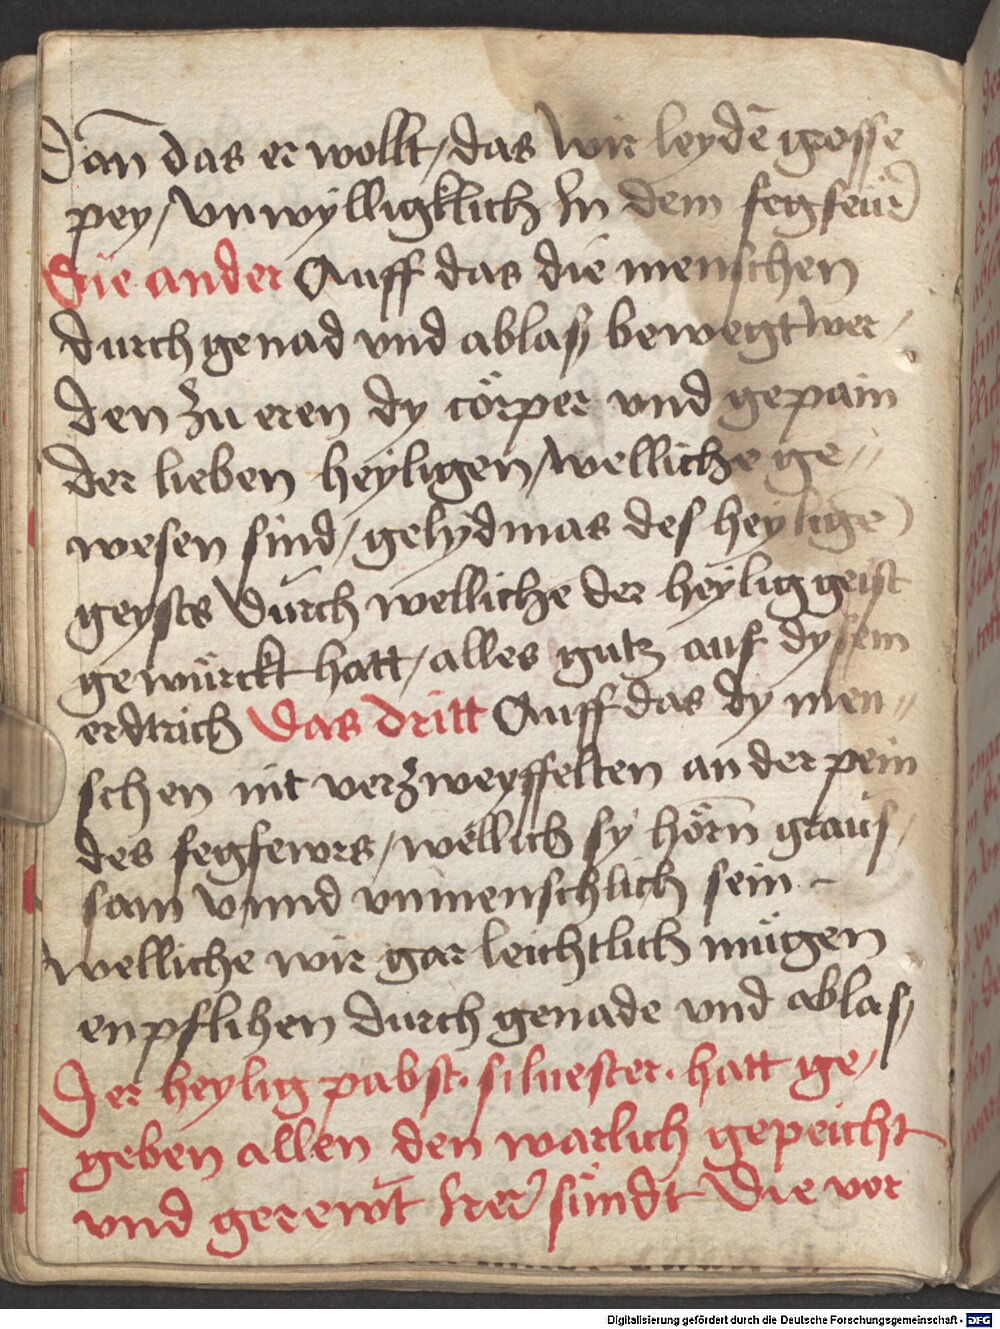 Dan̄ das er wollt / das wir leydē grosse
pey / vnwylligklich In dem fegfeür
Die ander Auff das die menschen
durch genad vnd ablaß bewegt wer /
den zu eren dy cörper vnd gepain
der lieben heyligen / welliche ge //
wesen sind / gelydmas des heyligē
geysts durch welliche der heylig geist
gewürckt hatt / alles gutz auf dyssem
erdtrich Das dritt Auff das dy men //
schen nit verzweyffelten an der pein
des fegfewrs / wellich sy hörn̄ graus /
sam vnnd vnmenschlich sein –
welliche wir gar leichtlich mügen
enpflihen durch genade vnd ablaß
Der heylig pabst · siluester · hatt ge /
geben allen den warlich gepeicht
vnd gerewt̄ Irer sündt Die vor
Digitalisierung gefördert durch die Deutsche Forschungsgemeinschaft - DFG